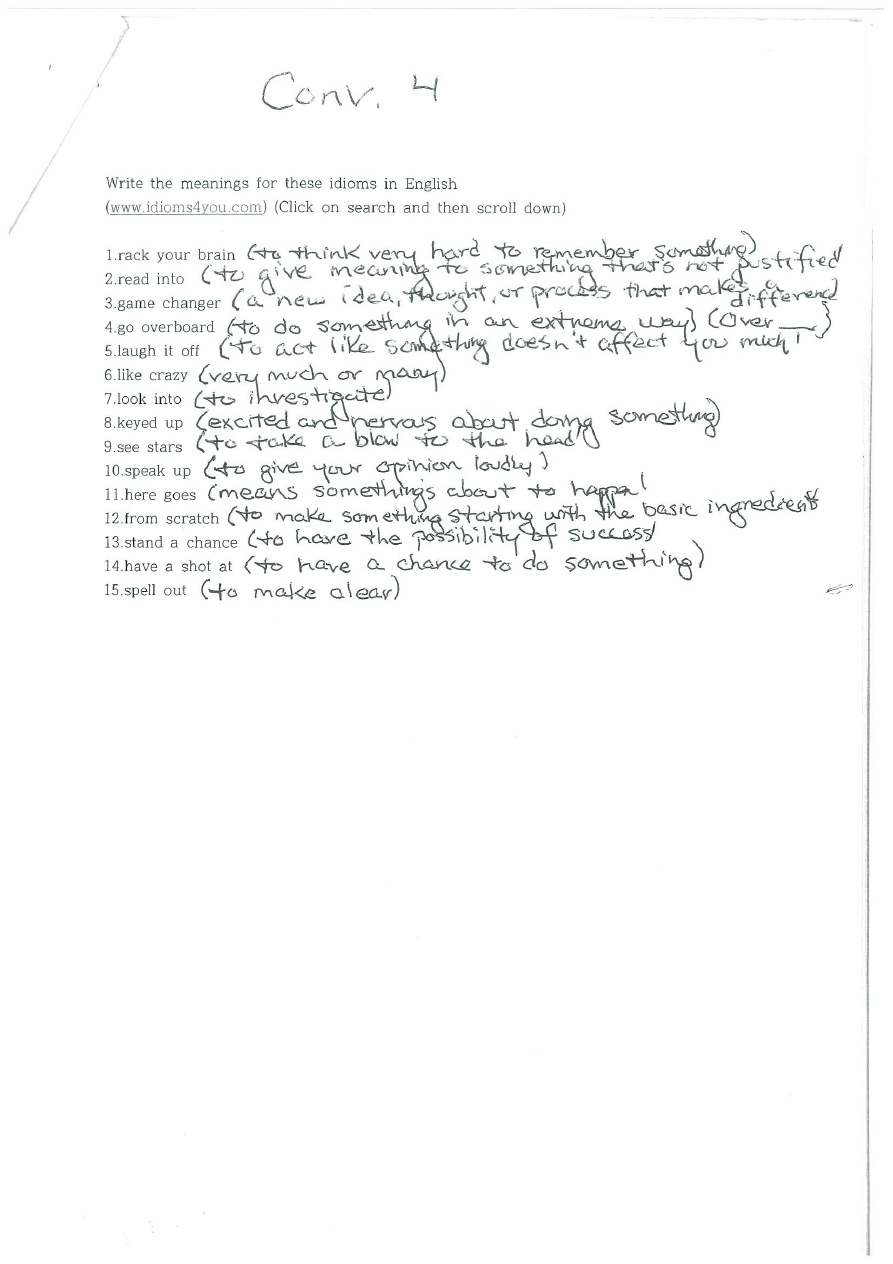 Conv. 4
Write the meanings for these idioms in English
(www.idioms4you.com) (Click on search and then scroll down)
1.rack your brain (to think very hard to remember something)
2.read into (to give meaning to something that's not justified
3.game changer (a new idea, thought, or process that makes a difference)
4.go overboard (to do something in an extreme way) (over ___)
5.laugh it off (to act like something doesn't affect you much)
6.like crazy (very much or many)
7.look into (to investigate)
8.keyed up (excited and nervous about doing something)
9.see stars (to take a blow to the head)
10.speak up (to give your opinion loudly)
11.here goes (means something's about to happen)
12.from scratch (to make something starting with the basic ingredients
13.stand a chance (to have the possibility of success)
14.have a shot at (to have a chance to do something)
15.spell out (to make clear)